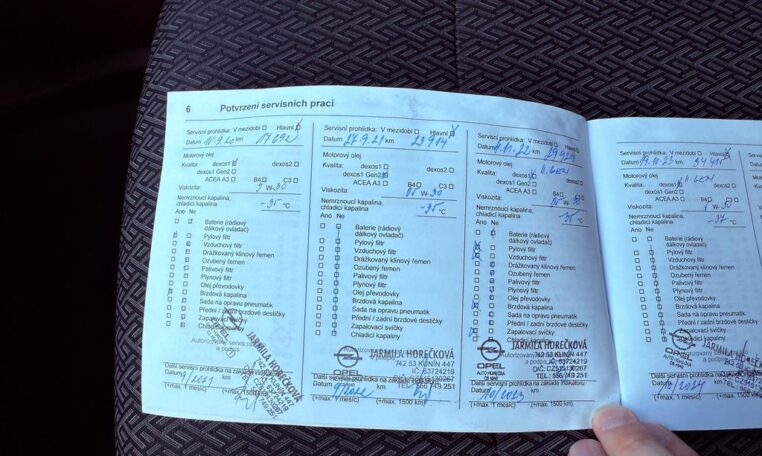 6 Potvrzení servisních prací
Servisní prohlídka: V mezidobí Hlavní
Datum km 17692
Motorový olej
Kvalita: dexos1 dexos2
dexos1 Gen2
ACEA A3 B4 C3
Viskozita: W-30
Nemrznoucí kapalina,
chladicí kapalina -35 °C
Ano Ne
Baterie (rádiový
dálkový ovladač)
Pylový filtr
Vzduchový filtr
Drážkovaný klínový řemen
Ozubený řemen
Palivový filtr
Plynový filtr
Olej převodovky
Brzdová kapalina
Sada na opravu pneumatik
Přední / zadní brzdové destičky
Zapalovací svíčky
Chladicí
Autorizovaný servis
JARMILA HOREČKOVÁ
Další servisní prohlídka na základě
9/2021 km
(+max. 1 měsíc) (+max. 1500
Servisní prohlídka: V mezidobí Hlavní
Datum 27.9.21 km 23914
Motorový olej
Kvalita: dexos1 dexos2
dexos1 Gen2
ACEA A3 B4 C3
Viskozita: W-30
Nemrznoucí kapalina,
chladicí kapalina -35 °C
Ano Ne
Baterie (rádiový
dálkový ovladač)
Pylový filtr
Vzduchový filtr
Drážkovaný klínový řemen
Ozubený řemen
Palivový filtr
Plynový filtr
Olej převodovky
Brzdová kapalina
Sada na opravu pneumatik
Přední / zadní brzdové destičky
Zapalovací svíčky
Chladicí kapalina
JARMILA HOREČKOVÁ
742 53 KUNÍN 447
IČ: 63724219
OPEL
TEL.: 556 749 251
Další servisní prohlídka na základě indikátoru
Datum km
(+max. 1 měsíc) (+max. 1500 km)
Servisní prohlídka: V mezidobí Hlavní
Datum km 29929
Motorový olej
Kvalita: dexos1 II. GEN
dexos1 Gen2
ACEA A3 B4 C3
Viskozita: W-30
Nemrznoucí kapalina,
chladicí kapalina -35 °C
Ano Ne
Baterie (rádiový
dálkový ovladač)
Pylový filtr
Vzduchový filtr
Drážkovaný klínový řemen
Ozubený řemen
Palivový filtr
Plynový filtr
Olej převodovky
Brzdová kapalina
Sada na opravu pneumatik
Přední / zadní brzdové destičky
Zapalovací svíčky
Chladicí kapalina
JARMILA HOREČKOVÁ
742 53 KUNÍN 447
IČ: 63724219
OPEL
TEL.: 556 749 251
Další servisní prohlídka na základě indikátoru
Datum 10/2023 km
(+max. 1 měsíc) (+max. 1500 km)
Servisní prohlídka: V mezidobí Hlavní
Datum km 34415
Motorový olej
Kvalita: dexos1 II. GEN
dexos1 Gen2
ACEA A3 B4
Viskozita: W-30
Nemrznoucí kapalina,
chladicí kapalina °C
Ano Ne
Baterie (rádiový
dálkový ovladač)
Pylový filtr
Vzduchový filtr
Drážkovaný klínový řemen
Ozubený řemen
Palivový filtr
Plynový filtr
Olej převodovky
Brzdová kapalina
Sada na opravu pneumatik
Přední / zadní brzdové
Zapalovací svíčky
JARMILA
OPEL
Další servisní prohlídka na základě
10/2024
(+max. 1 měsíc) (+max.